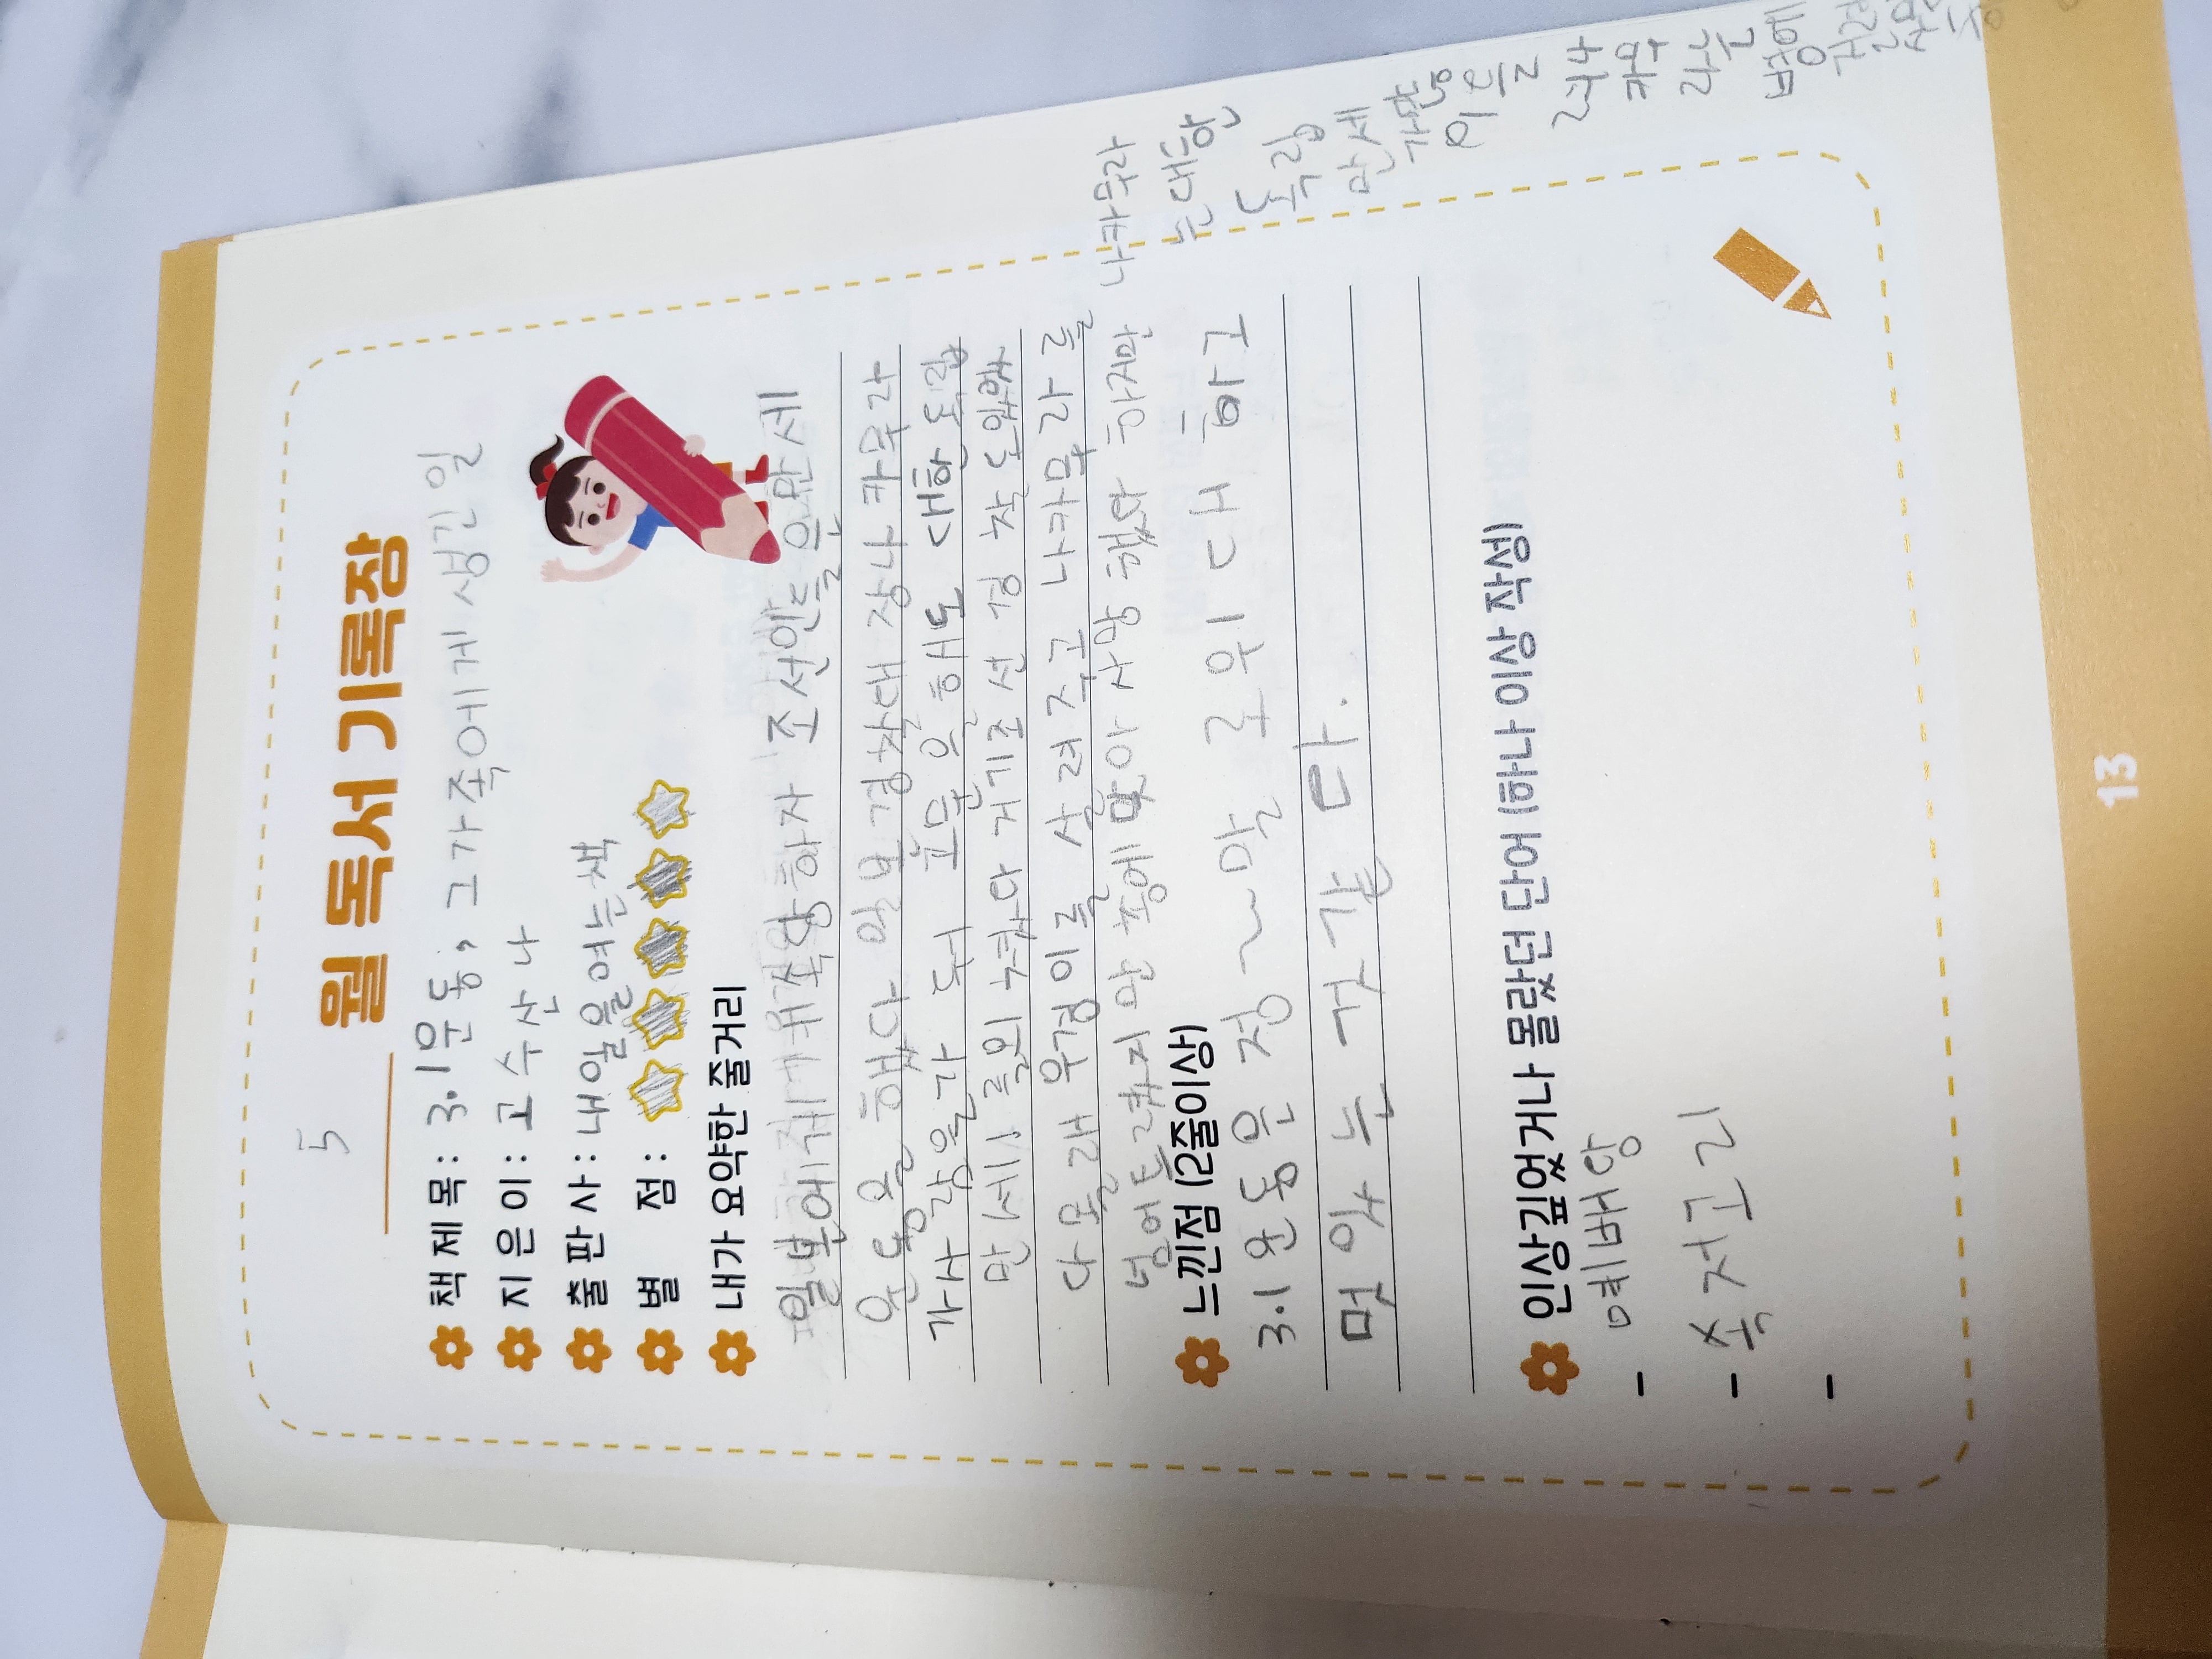 5 월 독서 기록장
책 제 목 : 3.1운동; 그가족에게 생긴일
지 은 이 : 고수산나
출 판 사 : 내일을여는책
별 점 :
내가 요약한 줄거리
일본에게 당하자 조선인들은 만세
운동을 했다 일본경찰대장 나카무라
가 사람을 가둬 고문을 해도 대한독립
만세! 를 외쳤다 거기 조선 경찰도 있었
다 몰래 우경이를 살려주고 나카무라를
넘어트렸지만 총에 맞아 사망했다 하지만 나카무라
는 대한
독립
만세
가
들
라는
느낀점 (2줄이상)
3.1 운동은 정~말 로위대하고
멋있는 것 같다.
인상깊었거나 몰랐던 단어 (하나 이상 작성)
- 예배당
- 속저고리
-
13